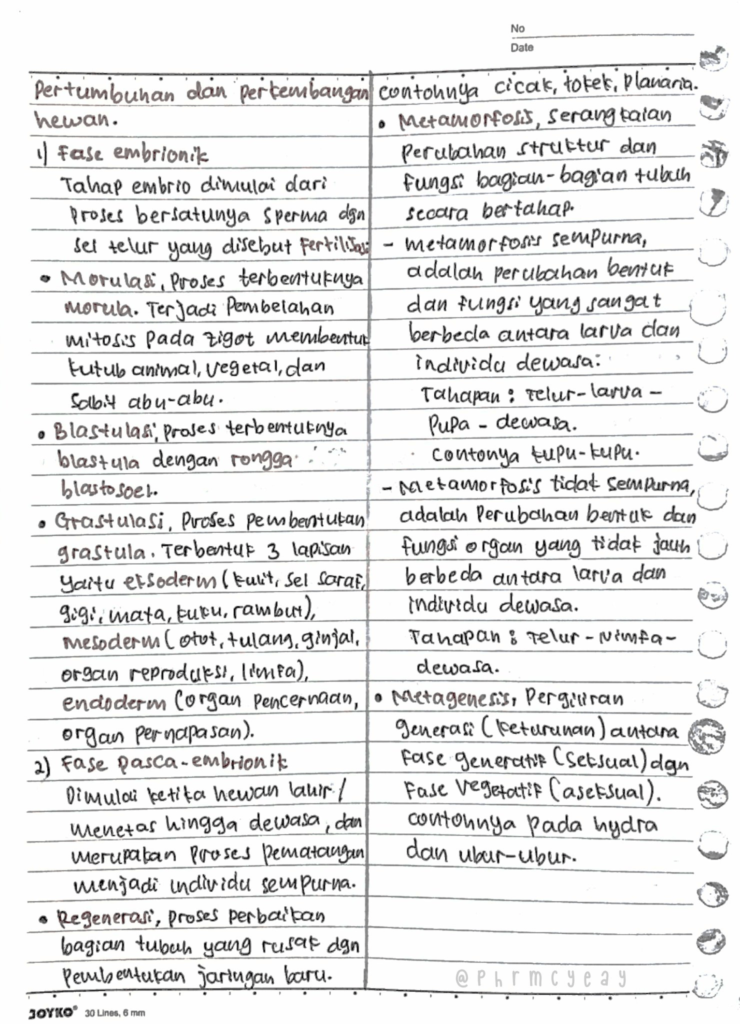 No
Date
Pertumbuhan dan perkembangan
hewan.
1) Fase embrionik
Tahap embrio dimulai dari
proses bersatunya sperma dgn
sel telur yang disebut Fertilisasi
• Morulasi, proses terbentuknya
morula. Terjadi Pembelahan
mitosis pada zigot membentuk
kutub animal, vegetal, dan
Sabit abu-abu.
• Blastulasi, proses terbentuknya
blastula dengan rongga
blastosoel.
• Grastulasi, Proses pembentukan
grastula. Terbentuk 3 lapisan
yaitu eksoderm (kulit, sel saraf,
gigi, mata, kuku, rambut),
mesoderm (otot, tulang, ginjal,
organ reproduksi, limfa),
endoderm (organ pencernaan,
organ pernapasan).
2) Fase pasca-embrionik
Dimulai ketika hewan lahir/
menetas hingga dewasa, dan
merupakan proses pematangan
menjadi individu sempurna.
• Regenerasi, proses perbaikan
bagian tubuh yang rusak dgn
pembentukan jaringan baru.
contohnya cicak, tokek, planaria.
• Metamorfosis, serangkaian
perubahan struktur dan
fungsi bagian-bagian tubuh
secara bertahap.
- metamorfosis sempurna,
adalah perubahan bentuk
dan fungsi yang sangat
berbeda antara larva dan
individu dewasa:
Tahapan : Telur-larva-
Pupa - dewasa.
contonya kupu-kupu.
- Metamorfosis tidak sempurna,
adalah perubahan bentuk dan
fungsi organ yang tidak jauh
berbeda antara larva dan
individu dewasa.
Tahapan : Telur-Nimfa-
dewasa.
• Metagenesis, Pergiliran
generasi (keturunan) antara
fase generatif (seksual) dgn
fase vegetatif (aseksual).
contohnya pada hydra
dan ubur-ubur.
@phrmcyeay
JOYKO® 30 Lines, 6 mm